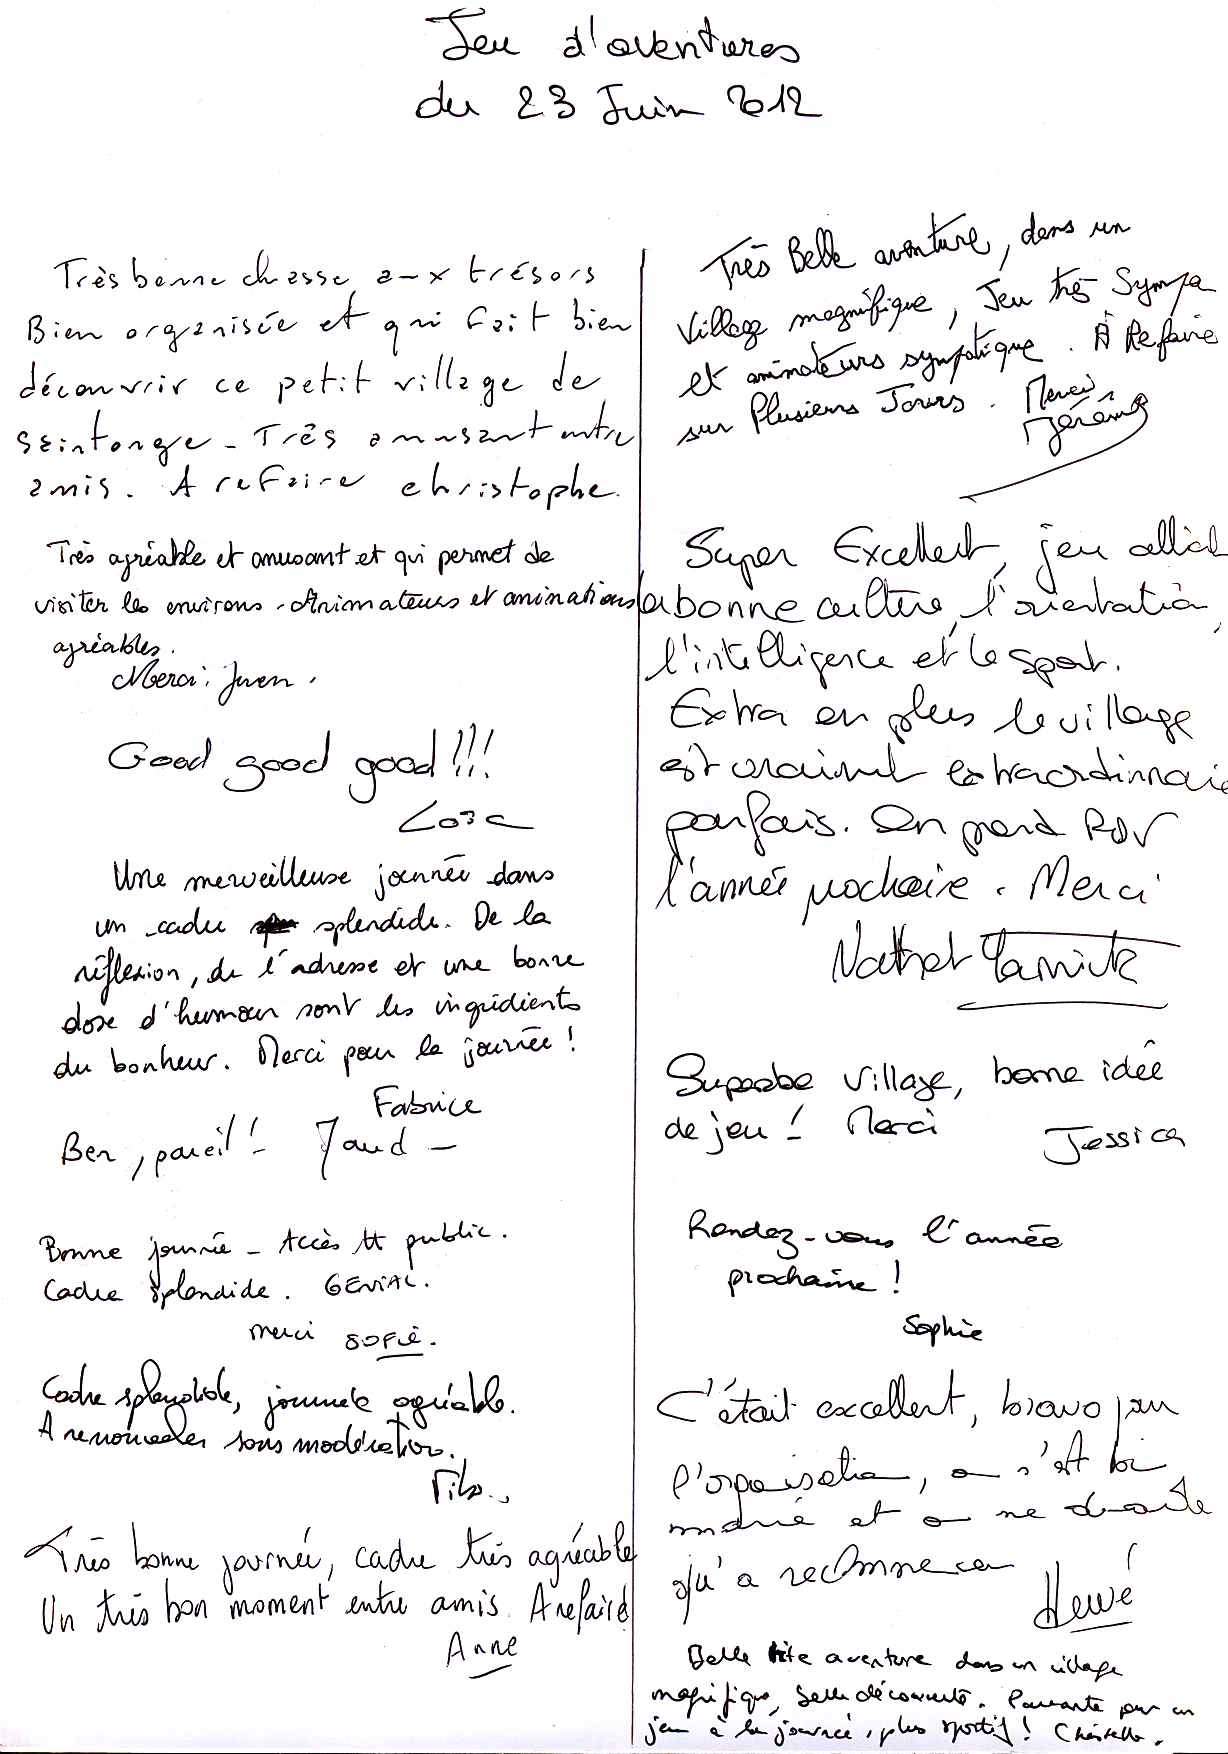 Jeu d'aventures
du 23 Juin 2012
Très bonne chasse aux trésors
Bien organisée et qui fait bien
découvrir ce petit village de
Saintonge - Très amusant entre
amis. A refaire christophe.
Très agréable et amusant et qui permet de
visiter les environs. Animateurs et animations
agréables.
Merci.
Good good good!!!
Une merveilleuse journée dans
un cadre splendide. De la
réflexion, de l'adresse et une bonne
dose d'humour sont les ingrédients
du bonheur. Merci pour la journée!
Fabrice
Ben, pareil!
Bonne journée - Accès tt public.
Cadre splendide. GENIAL.
merci SOFIE.
Cadre splendide, journée agréable.
A renouveler sans modération.
Très bonne journée, cadre très agréable
Un très bon moment entre amis. A refaire
Anne
Très Belle aventure, dans un
Village magnifique, Jeu très Sympa
et animateurs sympatique. À Refaire
sur Plusieurs Jours. Merci
Jérémy
Super Excellent, jeu alliant
la bonne culture, l'orientation,
l'intelligence et le sport.
Extra en plus le village
est vraiment extraordinnaire
parfais. On prend RDV
l'année prochaine. Merci
Yannick
Superbe village, bonne idée
de jeu! Merci
Jessica
Rendez-vous l'année
prochaine!
Sophie
C'était excellent, bravo pour
l'organisation, on s'est bien
marré et on ne doute
qu'a recommencer!
Hervé
Belle tite aventure dans un village
magnifique, belle découverte. Partante pour un
jeu à la journée, plus sportif! Christelle.